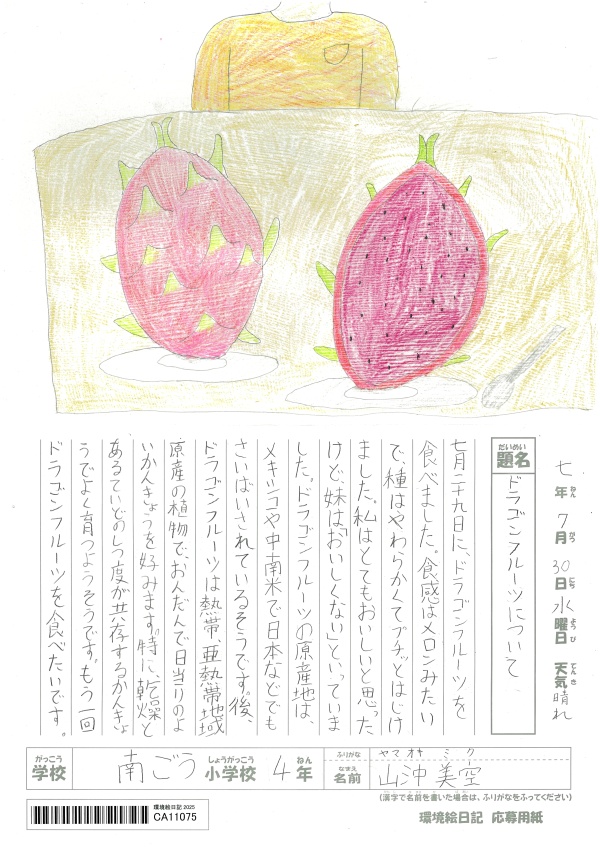 七年7月30日水曜日 天気晴れ
ねん がつ にち ようび てんき
だいめい
題名
ドラゴンフルーツについて
七月二十九日に、ドラゴンフルーツを
食べました。食感はメロンみたい
で、種はやわらかくてプチッとはじけ
ました。私はとてもおいしいと思った
けど、妹は「おいしくない」といっていま
した。ドラゴンフルーツの原産地は、
メキシコや中南米で日本などでも
さいばいされているそうです。後、
ドラゴンフルーツは熱帯、亜熱帯地域
原産の植物で、おんだんで日当りのよ
いかんきょうを好みます。特に、乾燥と
あるていどのしつ度が共存するかんきょ
うでよく育つようそうです。もう一回
ドラゴンフルーツを食べたいです。
がっこう しょうがっこう ねん
学校 南ごう小学校 4年
ふりがな ヤマオキ ミク
なまえ
名前 山沖 美空
(漢字で名前を書いた場合は、ふりがなをふってください)
環境絵日記 応募用紙
環境絵日記 2025
CA11075